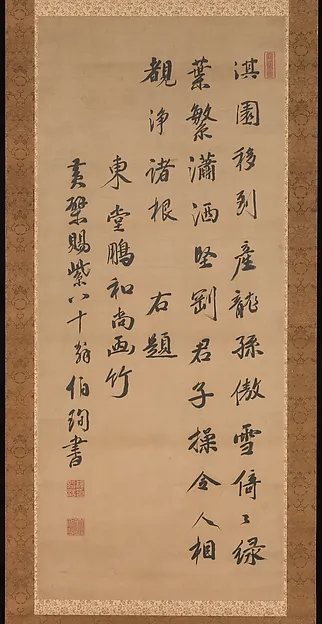 淇園移到産龍孫傲雪倚〻緑
葉繁瀟洒堅剛君子操令人相
覩浄諸根　右題
東堂鵬和尚画竹
黄檗賜紫八十翁伯珣書